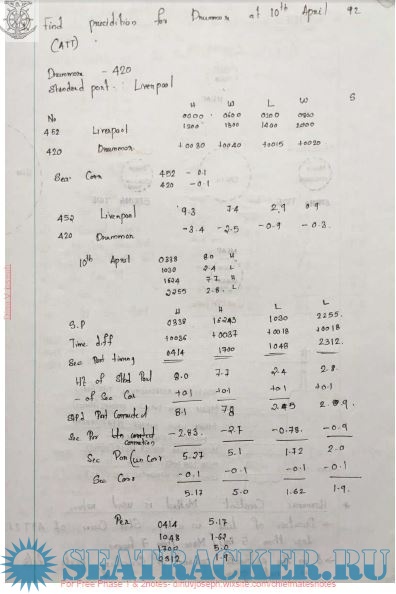 Find precidition for Drummore at 10th April 92
(ATT)
Drummore - 420
Standard port : Liverpool
H W L W S
No 0000 0600 0200 0800
1200 1800 1400 2000
452 Liverpool
420 Drummore +0030 +0040 +0015 +0020
Sea Corr 452 - 0.1
420 - 0.1
452 Liverpool 9.3 7.4 2.9 0.9
420 Drummore -3.4 -2.5 -0.9 -0.3
10th April 0338 8.0 H
1030 2.4 L
1624 7.7 H
2255 2.8 L
H H L L
S.P 0338 1030 2255.
Time diff +0036 +0037 +0018 +0018
Sec Port timing 0414 1700 1048 2312.
Ht of Std Port 8.0 7.7 2.4 2.8
- of Sea Cor +0.1 +0.1 +0.1 +0.1
Std Port Corrected 8.1 7.8
Sec Por -2.83. -2.7 -0.78. -0.9
Sec Port (un Corr 5.27 5.1 1.72 2.0
Sea Corr -0.1 -0.1 -0.1 -0.1
5.17 5.0 1.62 1.9.
0414 5.17
1048 1.62
1700 5.0
2312 1.9
SEATRACKER.RU
For Free Phase 1 & 2notes- dinuvjoseph.wixsite.com/chiefmatesnotes